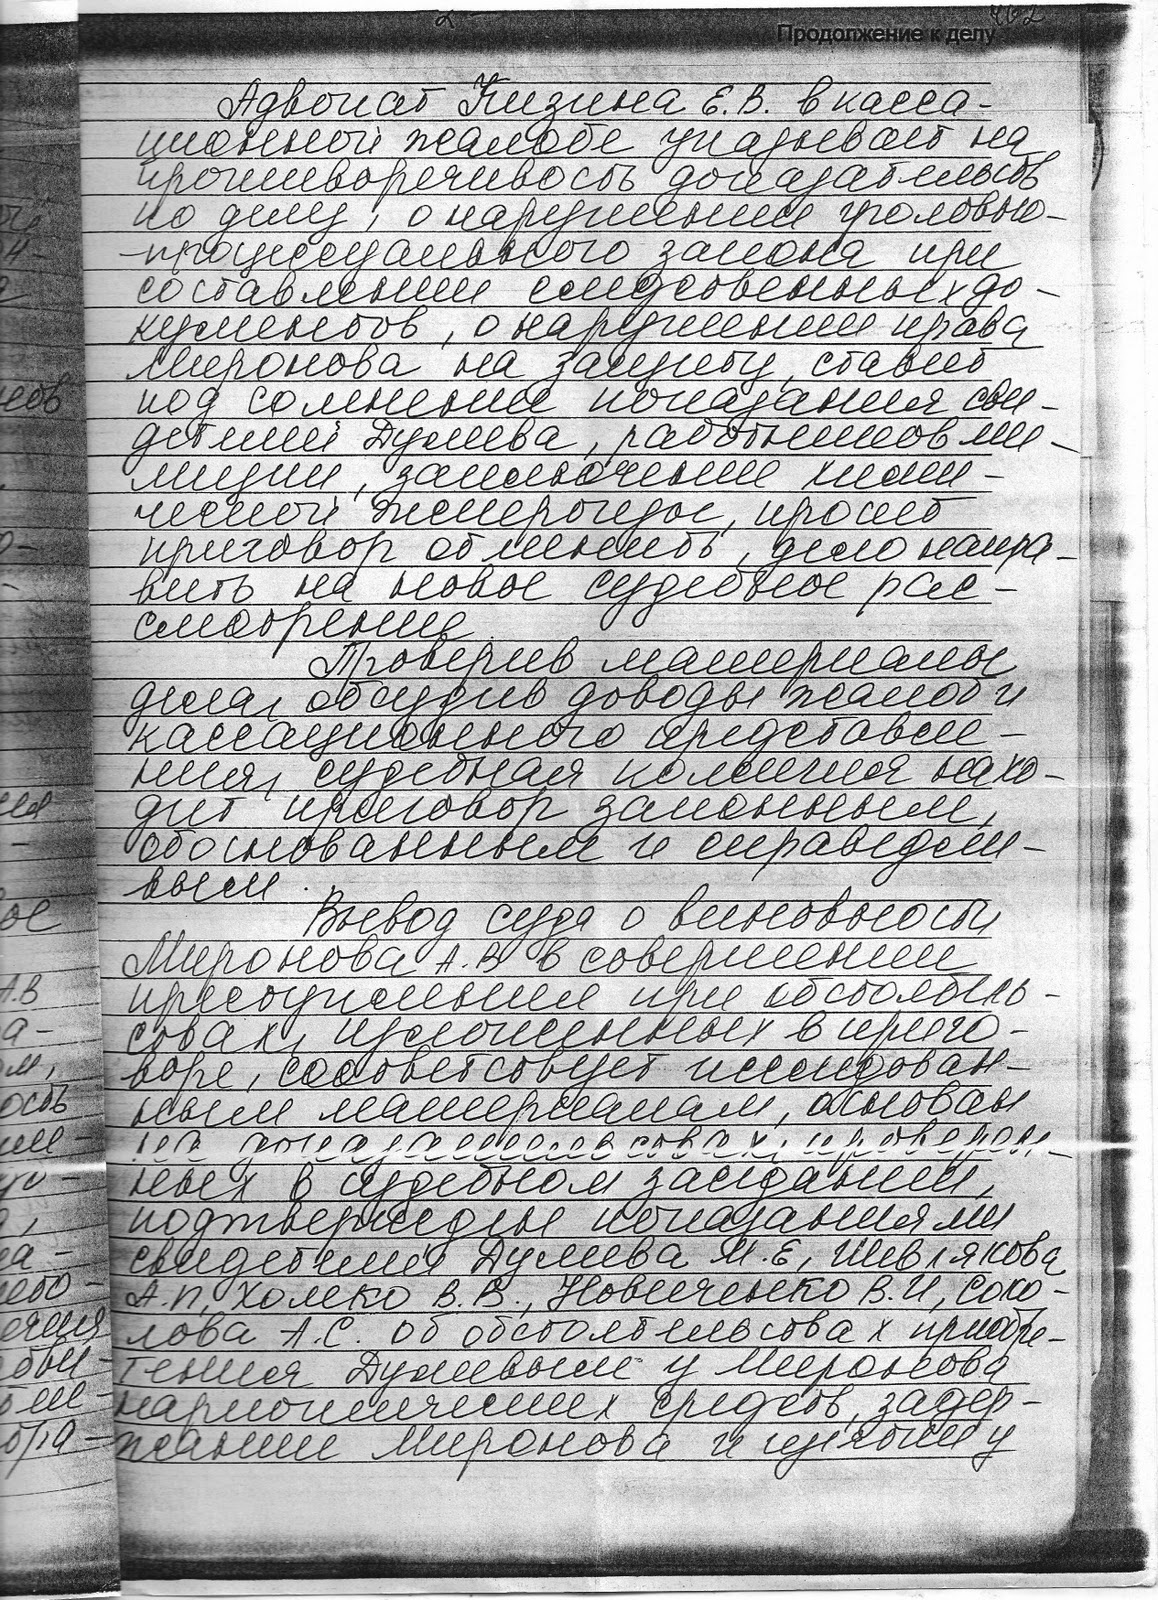 Продолжение к делу
Адвокат Кизина Е.В. в касса-
ционной жалобе указывает на
противоречивость доказательств
по делу, о нарушении уголовно-
-процессуального закона при
составлении следственных до-
кументов, о нарушении права
Миронова на защиту, ставит
под сомнение показания сви-
детелей Дулиева, работников ми-
лиции, заключение хими-
ческой экспертизы, просит
приговор отменить, дело напра-
вить на новое судебное рас-
смотрение
Проверив материалы
дела, обсудив доводы жалоб и
кассационного представле-
ния, судебная коллегия нахо-
дит приговор законным,
обоснованным и справедли-
вым.
Вывод суда о виновности
Миронова А.В в совершении
преступления при обстоятель-
ствах, изложенных в приго-
воре, соответствует исследован-
ным материалам, основан
на доказательствах, проверен-
ных в судебном заседании,
подтверждены показаниями
свидетелей Дулиева М.Е, Шевлякова
А.П, Хомеко В.В., Новиченко В.И, Соко-
лова А.С. об обстоятельствах приобре-
тения Дулиевым у Миронова
наркотических средств, задер-
жании Миронова и изъятии у